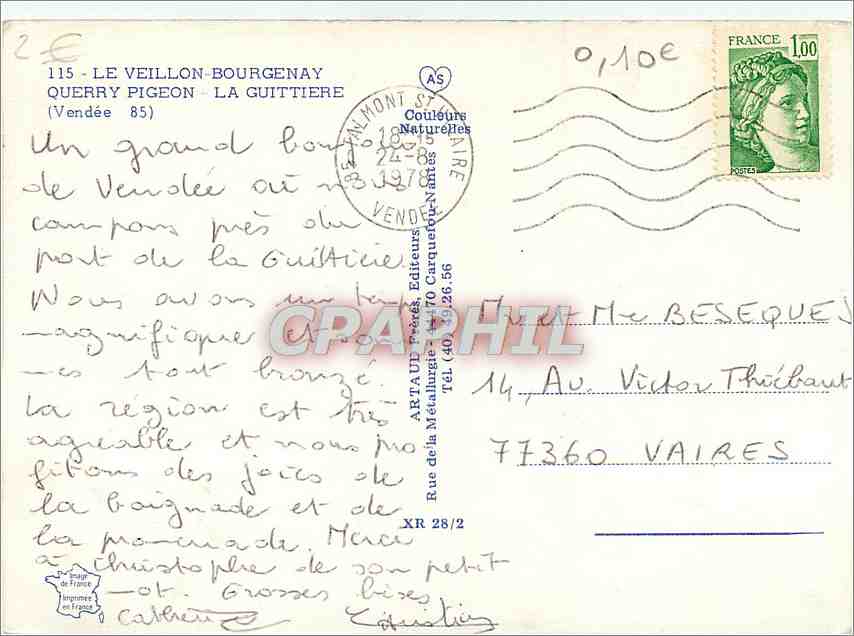 2€
0,10€
115 - LE VEILLON-BOURGENAY
QUERRY PIGEON - LA GUITTIERE
(Vendée 85)
AS
Couleurs
Naturelles
FRANCE 1,00
POSTES
85 TALMONT ST HILAIRE
18-15
24-8
1978
VENDEE
Un grand bonjour
de Vendée où nous
campons près du
port de la Guittière.
Nous avons un temps
magnifique et som-
mes tout bronzé.
La région est très
agréable et nous pro
fitons des joies de
la baignade et de
la promenade. Merci
à Christophe de son petit
mot. Grosses bises
Catherine Christian
Mr et Me BESEQUES
14, Av. Victor Thiébaut
77360 VAIRES
ARTAUD Frères, Editeurs
Rue de la Métallurgie - 44470 Carquefou-Nantes
Tél. (40) 49.26.56
XR 28/2
Image
de France
Imprimée
en France
CPAPHIL